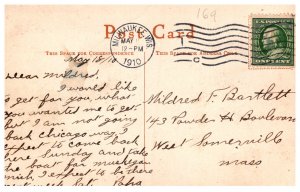 169
Post Card
MILWAUKEE, WIS.
MAY
12-PM
1910
C
THIS SPACE FOR CORRESPONDENCE
THIS SPACE FOR ADDRESS ONLY
ONE CENT
May 15/10
Dear Mildred.
I would like
to get for you, what
you wanted me to get.
but I am not going
back Chicago way. I
expect to come back
here Sunday and take
the boat for Michigan
which I expect to be there
next week
Mildred F. Bartlett
143 Powder H Boulevard
West Somerville
Mass